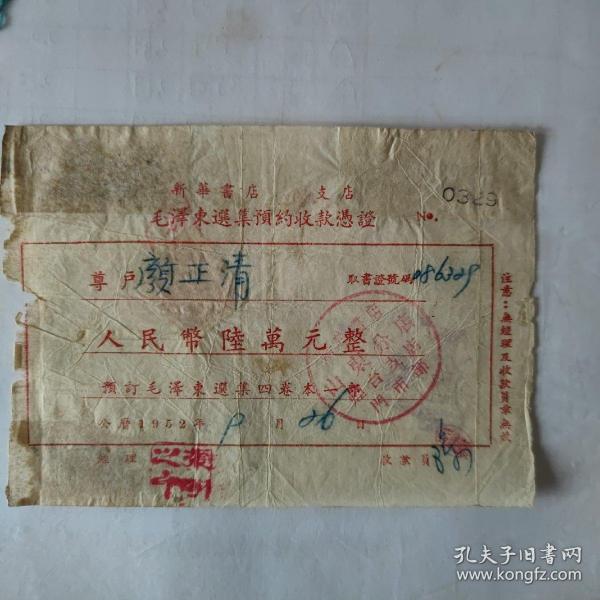 新華書店 支店
毛澤東選集預約收款憑證 No. 0329
尊戶 顏正清 取書證號碼 086329
人民幣陸萬元整
預訂毛澤東選集四卷本一部
公曆1952年 9月26日
經理 收款員
注意：無經理及收款員章無效
孔夫子旧书网
www.kongfz.com